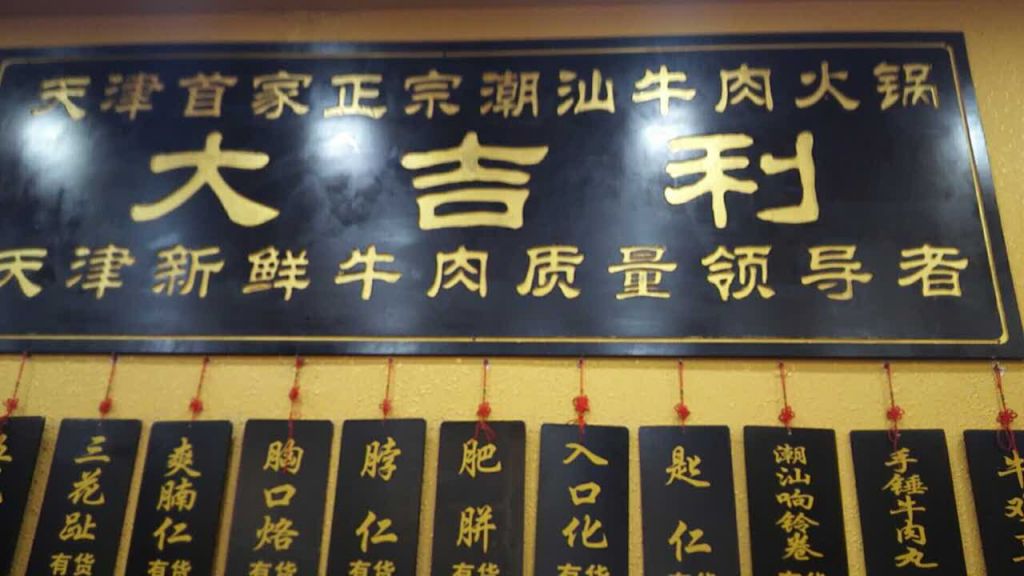 天津首家正宗潮汕牛肉火锅
大吉利
天津新鲜牛肉质量领导者
三花趾
有货
爽腩仁
有货
胸口烙
有货
脖仁
有货
肥胼
有货
入口化
有货
匙仁
有货
潮汕响铃卷
手錘牛肉丸